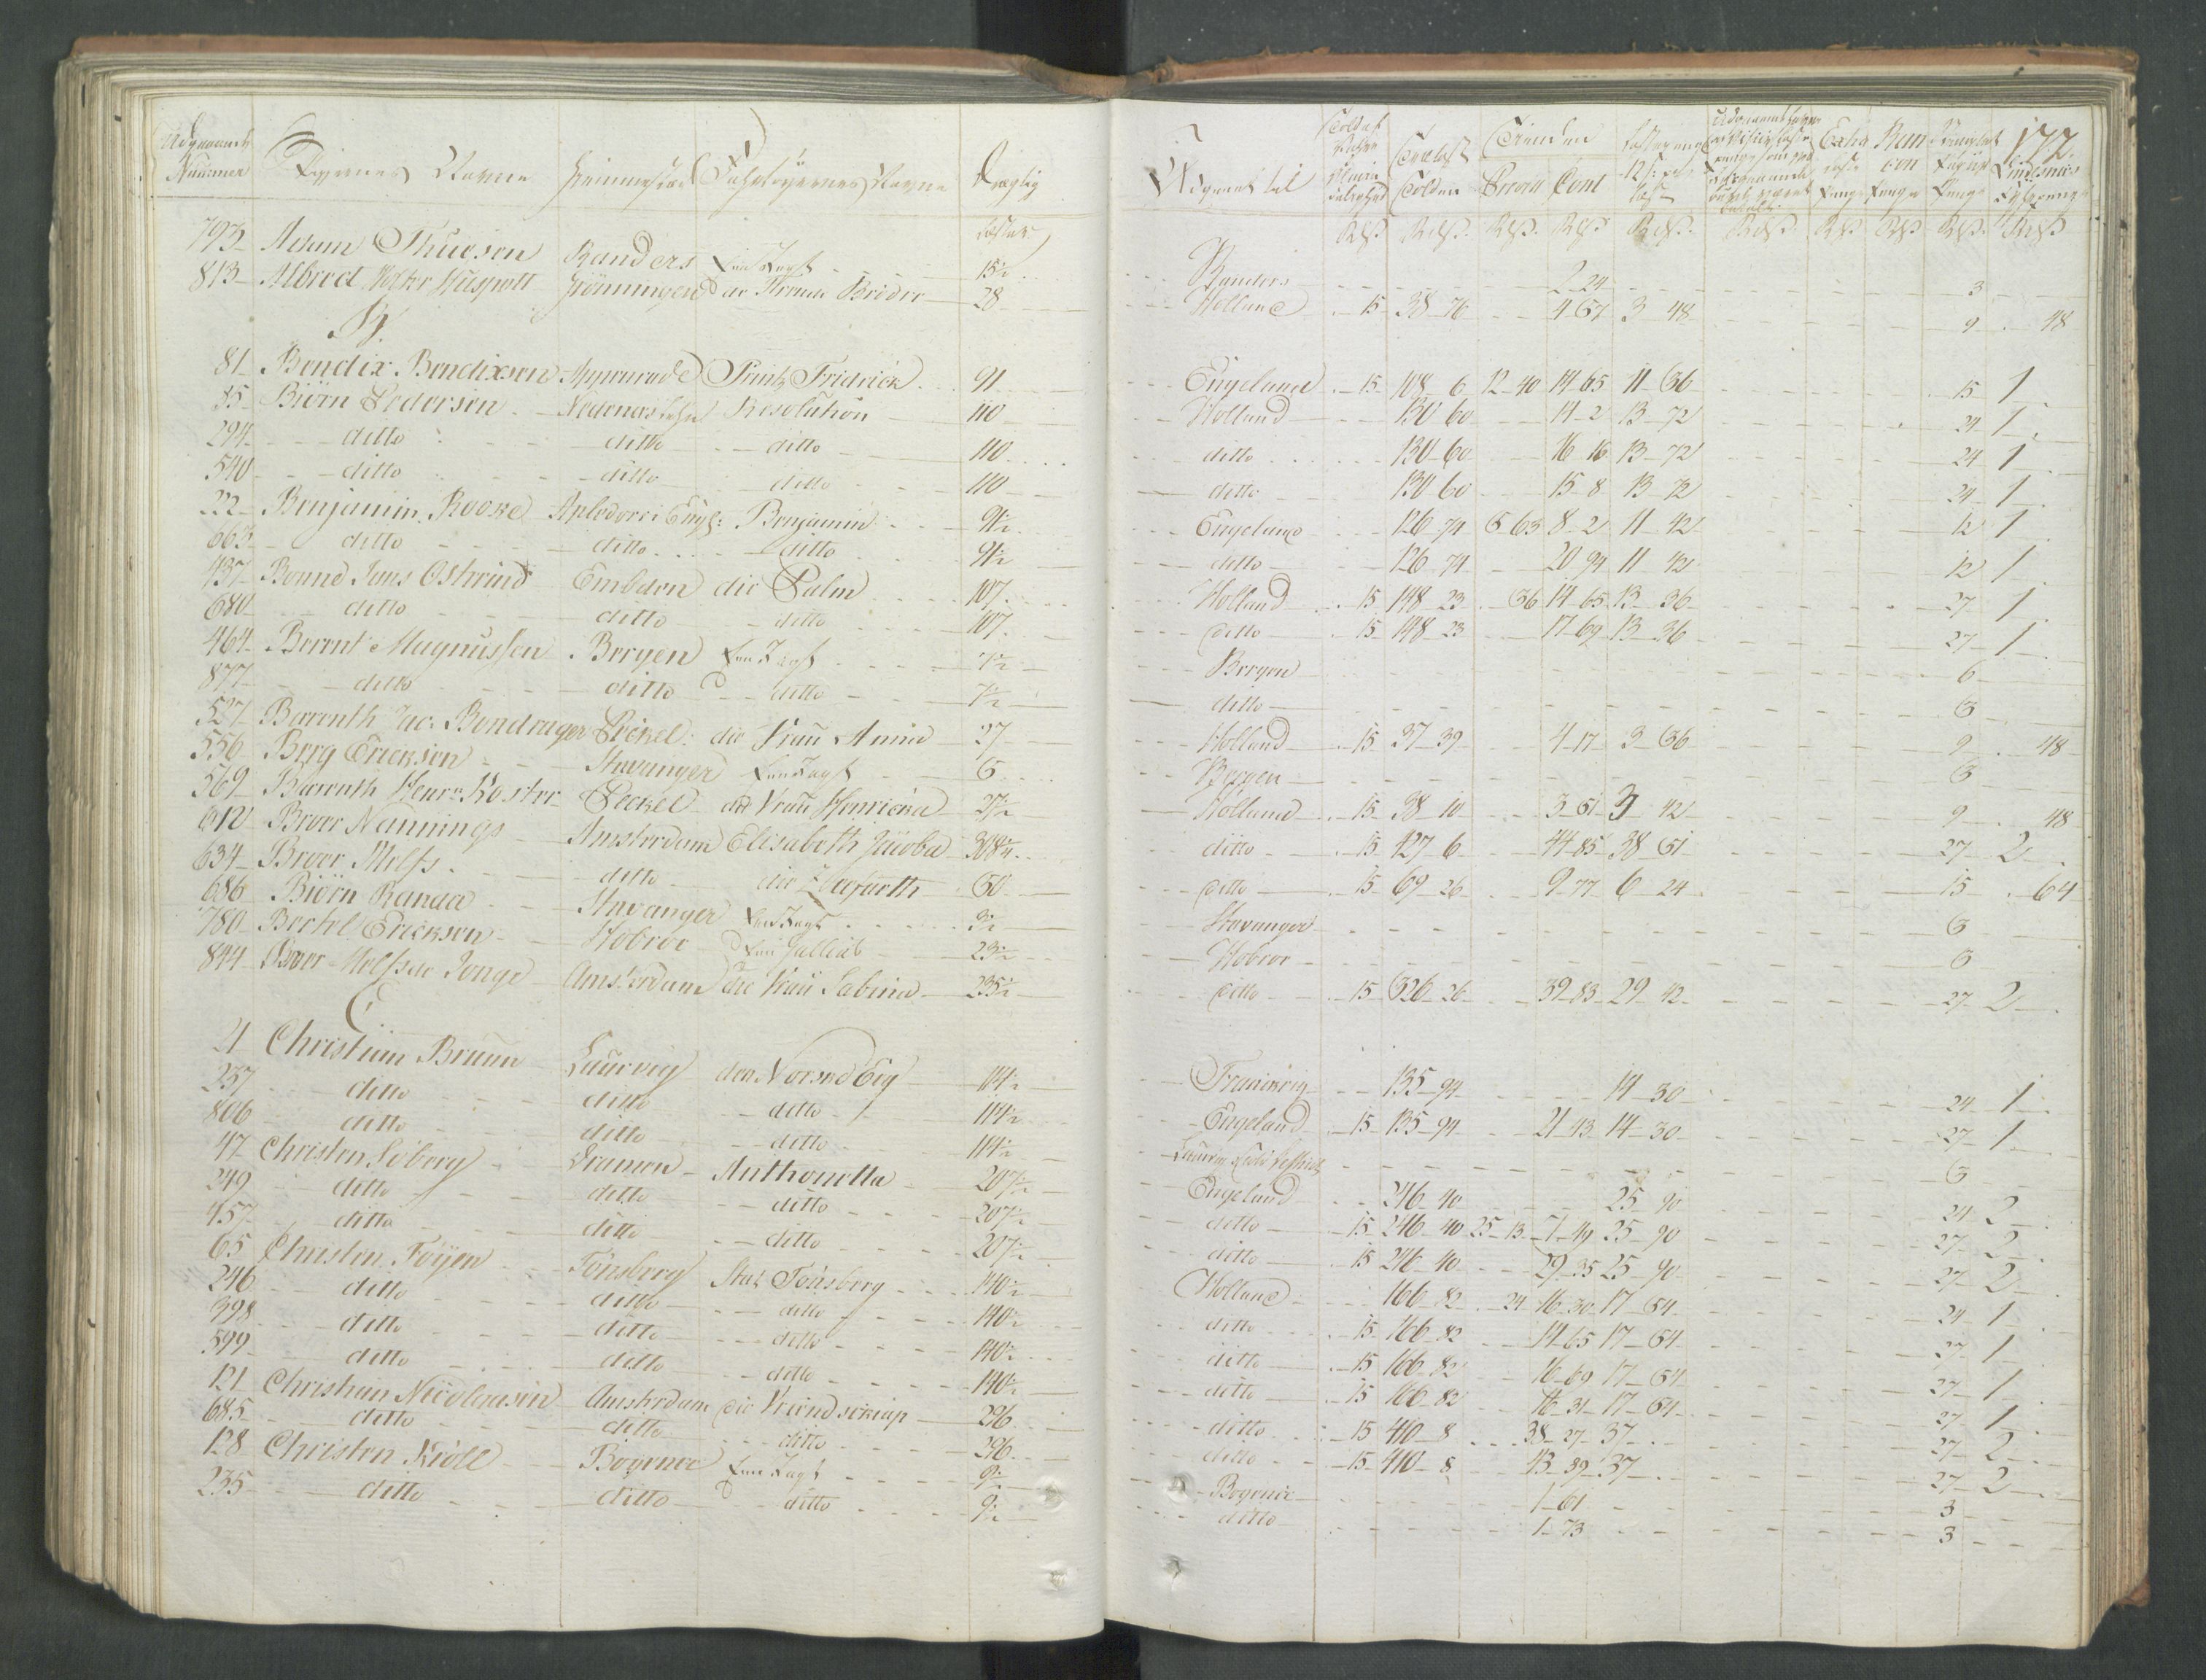 Udgaaende Nummer Navne Hiemmestæd Fahrtøyernes Navne Drægtig Læster
793 Adam Thuesen Randers Een Jagt 15½
813 Albred Huspott Grönningen de Fremde Bröder 28
B.
81 Bendix Bendixsen Appenrade Printz Fridrick 91
85 Biörn Pedersen Nedenæs Lehn Resolution 110
294 ditto ditto ditto 110
540 ditto ditto ditto 110
222 Benjamin Rooke Apledore i Engl: Benjamin 91½
663 ditto ditto ditto 91½
437 Bonne Jans Ostwind Embden die Palm 107
680 ditto ditto ditto 107
464 Berent Magnussen Bergen Een Jagt 7½
877 ditto ditto ditto 7½
527 Barenth Jac: Bondrager Peckel: die Frau Anna 27
556 Berg Ericksen Stavanger Een Jagt 6
569 Barenth Henr: Koster Peckel die Vrau Henricka 27½
612 Broer Nannings Amsterdam Elisabeth Jacoba 308¼
634 Broer Melfs ditto die Zeefarth 50
686 Biörn Ranaa Stavanger Een Jagt 3½
780 Bertel Ericksen Hobroe Een Galleas 23½
844 Broer Melfs de Jonge Amsterdam die Vrau Sabina 235½
C
4 Christian Bruun Laurvig den Norske Eeg 114½
237 ditto ditto ditto 114½
806 ditto ditto ditto 114½
47 Christen Söberg Dramen Anthonetta 207½
249 ditto ditto ditto 207½
457 ditto ditto ditto 207½
65 Christen Föyen Tönsberg Stat Tönsberg 140½
246 ditto ditto ditto 140½
398 ditto ditto ditto 140½
599 ditto ditto ditto 140½
121 Christian Nicolaisen Amsterdam die Vriendschap 296
685 ditto ditto ditto 296
128 Christen Kröll Bogense Een Jagt 9½
235 ditto ditto ditto 9½
172.
Udgaaet til Tolden Extra
Randers 2 24 3
Holland 15 38 76 4 67 3 48 9 48
Engeland 15 108 6 12 40 14 65 11 36 15 1
Holland 130 60 14 2 13 72 24 1
ditto 130 60 16 16 13 72 24 1
ditto 130 60 15 8 13 72 24 1
Engeland 126 74 6 63 8 2 11 42 12 1
ditto 126 74 20 94 11 42 12 1
Holland 15 148 23 36 14 65 13 36 27 1
ditto 15 148 23 17 69 13 36 27 1
Bergen 6
ditto 6
Holland 15 37 39 4 17 3 36 9 48
Bergen 6
Holland 15 38 10 3 61 3 42 9 48
ditto 15 427 6 44 85 38 51 27 2
ditto 15 69 26 9 77 6 24 15 64
Stavanger 6
Hobroe 6
ditto 15 326 26 39 83 29 42 27 2
Frankrig 135 94 14 30 24 1
Engeland 15 135 94 21 43 14 30 27 1
Laurvig 6
Engeland 246 40 25 90 24 2
ditto 15 246 40 25 13 7 49 25 90 27 2
ditto 15 246 40 29 35 25 90 27 2
Holland 166 82 24 16 30 17 54 24 1
ditto 15 166 82 14 65 17 54 27 1
ditto 15 166 82 16 69 17 54 27 1
ditto 15 166 82 16 31 17 54 27 1
ditto 15 410 8 38 27 37 27 2
ditto 15 410 8 43 89 37 27 2
Bogense 1 61 3
ditto 1 73 3